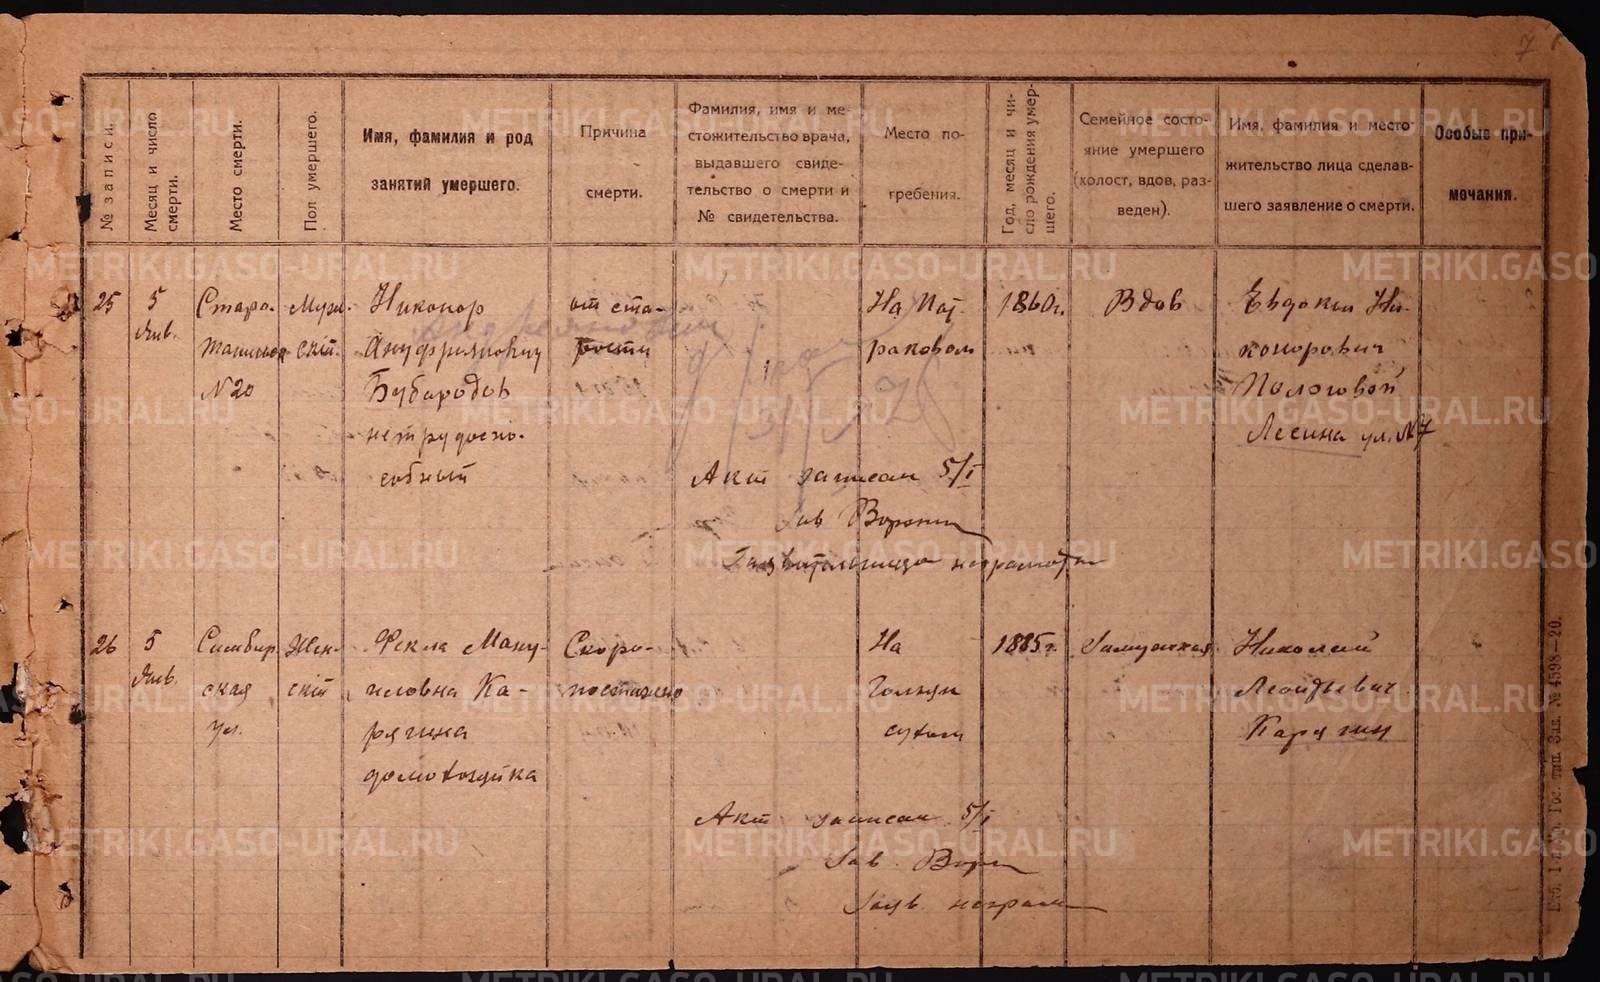 7
№ записи.
Месяц и число смерти.
Место смерти.
Пол умершего.
Имя, фамилия и род
занятий умершего.
Причина
смерти.
Фамилия, имя и ме-
стожительство врача,
выдавшего свиде-
тельство о смерти и
№ свидетельства.
Место по-
гребения.
Год, месяц и чи-
сло рождения умер-
шего.
Семейное состо-
яние умершего
(холост, вдов, раз-
веден).
Имя, фамилия и место-
жительство лица сделав-
шего заявление о смерти.
Особые при-
мечания.
25
5
Янв.
Стара-
№ 20
Муж-
ской.
Никонор
Ануфриянович
Бубародов
нетрудоспо-
собный
от ста-
рости
На
1860г.
Вдов
Евдокия Ни-
конорович
Пологовой
Ленина ул. № 7
Акт записан 5/I
Зав
неграмотная
26
5
Янв.
Симбир
ская
ул.
Жен-
ский
Фекла Ману-
иловна Ка-
рягина
домохозяйка
Скоро-
постижно
На
1885г.
Замужняя
Николай
Леонтьевич
Карягин
Акт записан 5/I
Зав.
Заяв. неграм
Гос. тип. Зак. № 4598—20.
METRIKI.GASO-URAL.RU